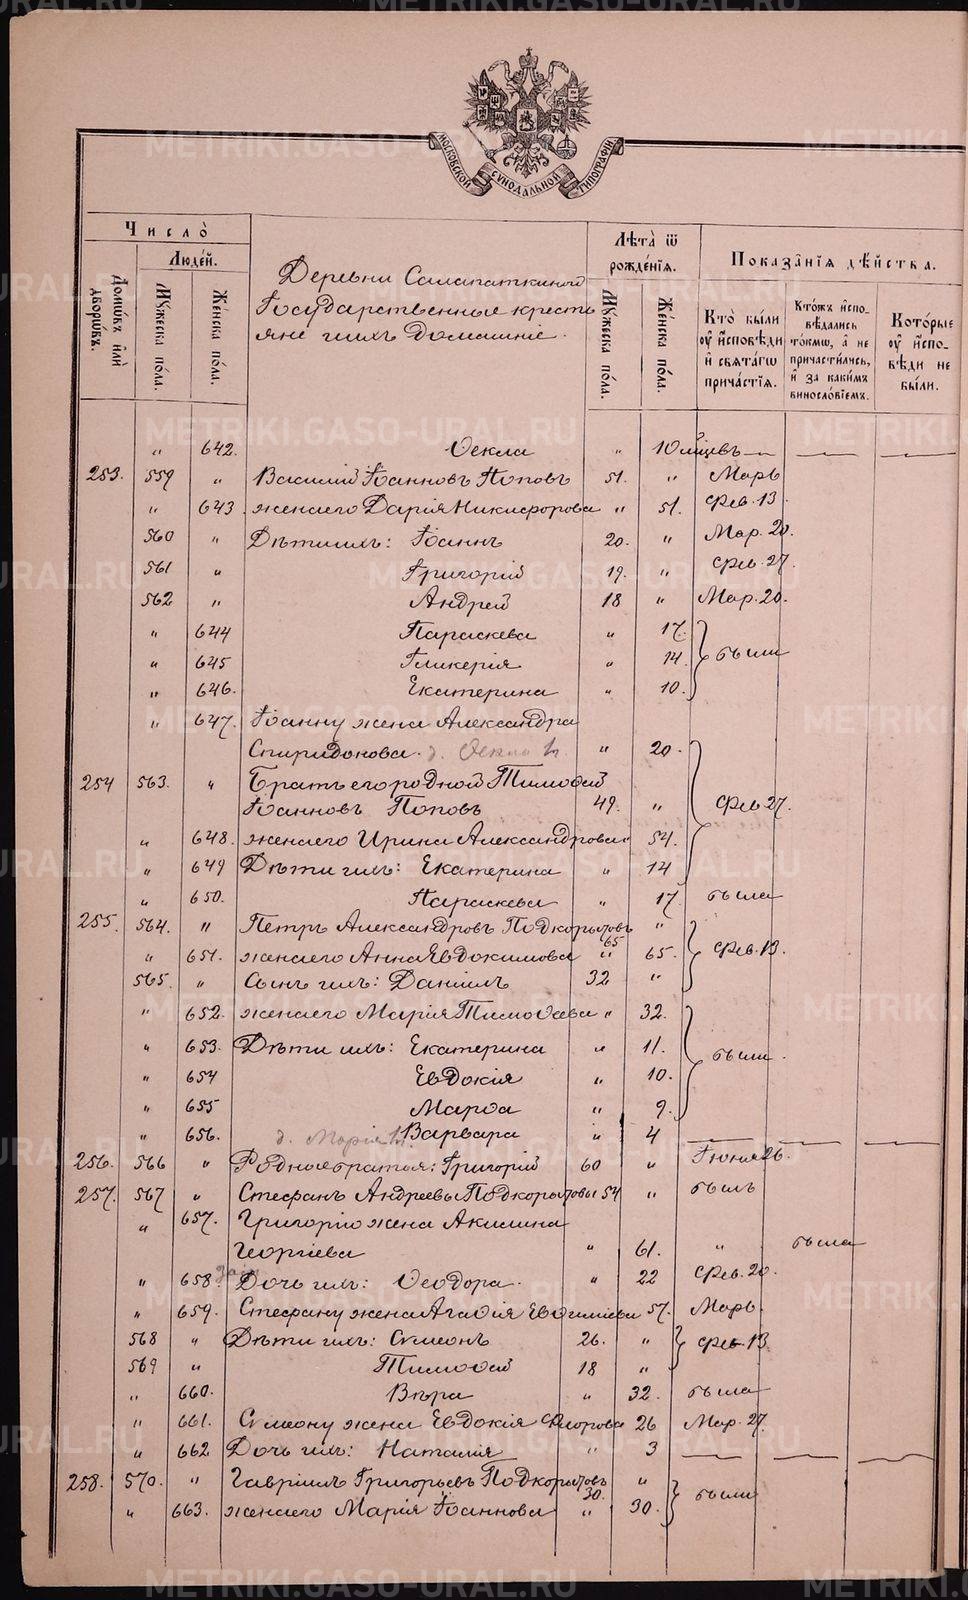 METRIKI.GASO-URAL.RU
МОСКОВСКОЙ СѴНОДАЛЬНОЙ ТИПОГРАФІИ
Число̀
Люде́й.
Домѡ́въ и҆лѝ дворѡ́въ.
Мꙋ́жеска по́ла.
Же́нска по́ла.
Деревни Салапаткиной
Государственные кресть
яне и ихъ домашніе.
Лѣ́та ѿ рожде́нїя.
Мꙋ́жеска по́ла.
Же́нска по́ла.
Показа̑нїѧ дѣ́йства.
Кто̀ бы́ли ᲂу҆ и҆́сповѣди и҆ свѧта́гѡ прича́стїѧ.
Кто́жъ и҆спо-вѣ́дались то́кмѡ, а҆ не причасти́лись, и҆ за каки́мъ виносло́вїемъ.
Кото́рые ᲂу҆ и҆́спо-вѣди не бы́ли.
„ 642. Ѳекла „ 10 лѣтъ
253. 559 „ Василий Іоанновъ Поповъ 51. „ Марь
„ 643. жена его Дарія Никифорова „ 51. Фев. 13.
560 „ Дѣти ихъ: Іоаннъ 20. „ Мар. 20.
561 „ Григорій 19. „ Фев. 27.
562 „ Андрей 18 „ Мар. 20.
„ 644 Параскева „ 17.
„ 645 Гликерія „ 14. были
„ 646. Екатерина „ 10.
„ 647. Іоанну жена Александра
Спиридонова. „ 20.
254 563. „ Братъ его родной Тимоѳей
Іоанновъ Поповъ 49. „ Фев 27.
„ 648. жена его Ирина Александрова „ 54.
„ 649 Дѣти ихъ: Екатерина „ 14
„ 650. Параскева „ 17. была
255. 564. „ Петръ Александровъ Подкорытовъ 65 „
„ 651. жена его Анна Евдокимова „ 65. Фев. 13.
565. „ Сынъ ихъ: Даніилъ 32 „
„ 652. жена его Марія Тимоѳеева „ 32.
„ 653. Дѣти ихъ: Екатерина „ 11. были.
„ 654 Евдокія „ 10.
„ 655 Марѳа „ 9.
„ 656. Варвара „ 4
256. 566 „ Родные братья: Григорій 60 „ Іюня 26.
257. 567 „ Стефанъ Андреевы Подкорытовы 54 „ былъ
„ 657. Григорію жена Акилина
Георгіева „ 61. „ была
„ 658 Дочь ихъ: Ѳеодора. „ 22 Фев. 20.
„ 659. Стефану жена Агаѳія Евѳиміева 57. Марь.
568 „ Дѣти ихъ: Сѵмеонъ 26. „ Фев. 13.
569 „ Тимоѳей 18 „
„ 660. Вѣра „ 32. была
„ 661. Сѵмеону жена Евдокія Флорова 26 Мар. 27.
„ 662 Дочь ихъ: Наталія „ 3
258. 570. „ Гавріилъ Григорьевъ Подкорытовъ 30. „
„ 663. жена его Марія Іоаннова „ 30. были